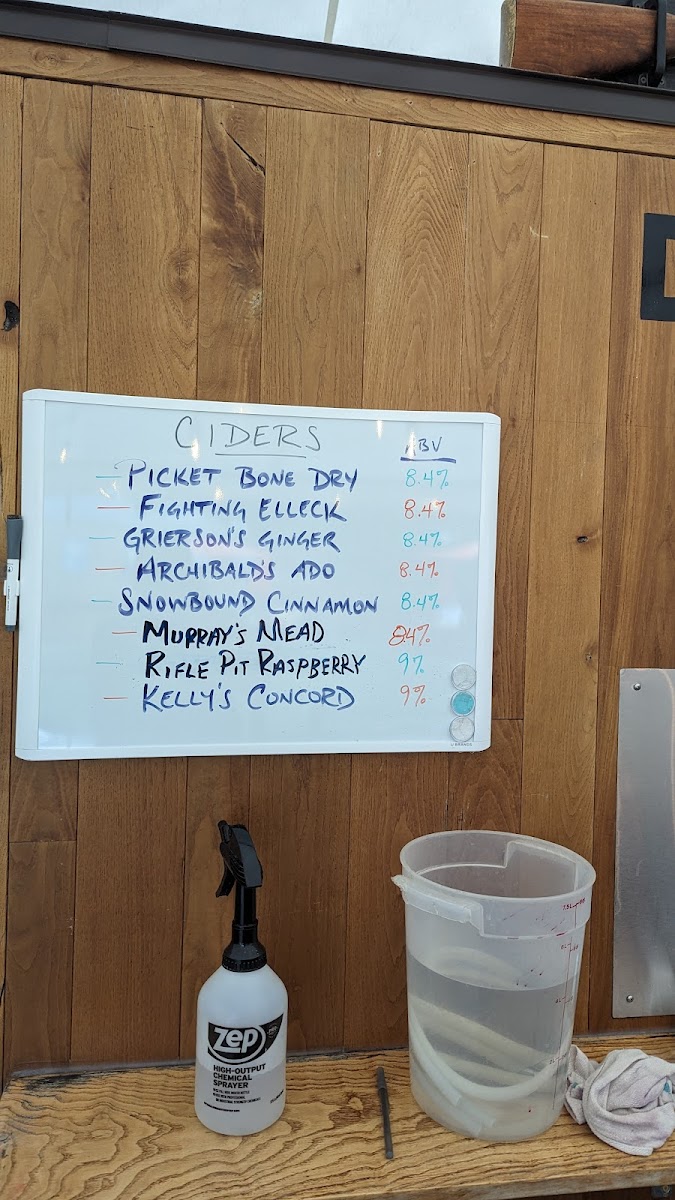 CIDERS ABV
– PICKET BONE DRY 8.4%
– FIGHTING ELLECK 8.4%
– GRIERSON'S GINGER 8.4%
– ARCHIBALD'S ADO 8.4%
– SNOWBOUND CINNAMON 8.4%
– MURRAY'S MEAD 8.4%
– RIFLE PIT RASPBERRY 9%
– KELLY'S CONCORD 9%
U BRANDS
zep
HIGH-OUTPUT
CHEMICAL
SPRAYER